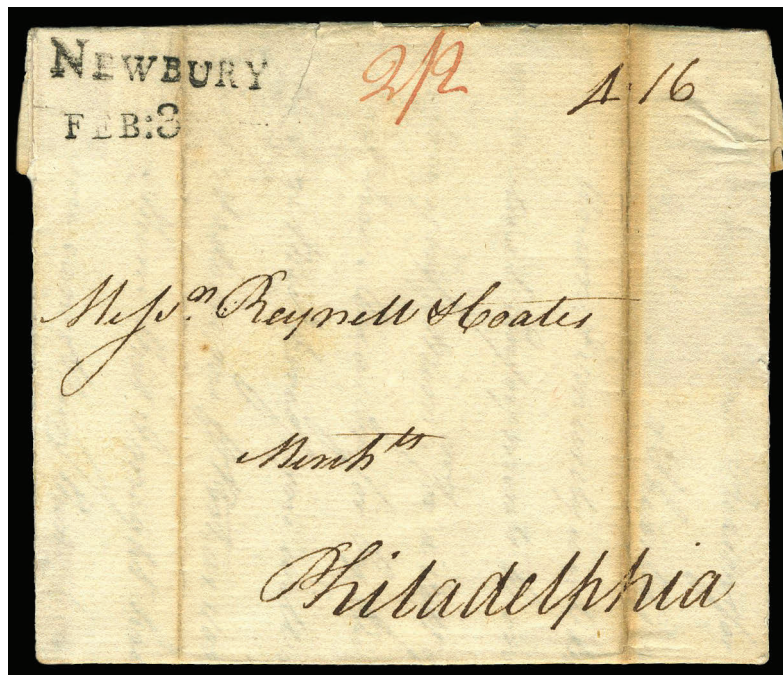 NEWBURY 2/2 4·16
FEB:3
Messrs. Reynell & Coates
Merchts
Philadelphia